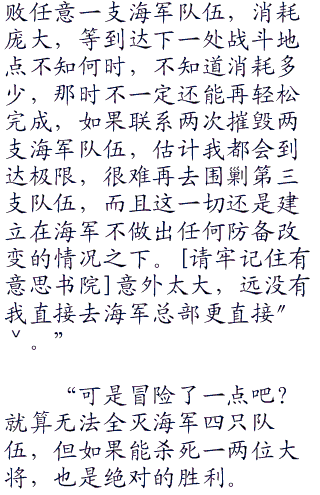 败任意一支海军队伍，消耗
庞大，等到达下一处战斗地
点不知何时，不知道消耗多
少，那时不一定还能再轻松
完成，如果联系两次摧毁两
支海军队伍，估计我都会到
达极限，很难再去围剿第三
支队伍，而且这一切还是建
立在海军不做出任何防备改
变的情况之下。[请牢记住有
意思书院]意外太大，远没有
我直接去海军总部更直接〃
ˇ。”
“可是冒险了一点吧？
就算无法全灭海军四只队
伍，但如果能杀死一两位大
将，也是绝对的胜利。